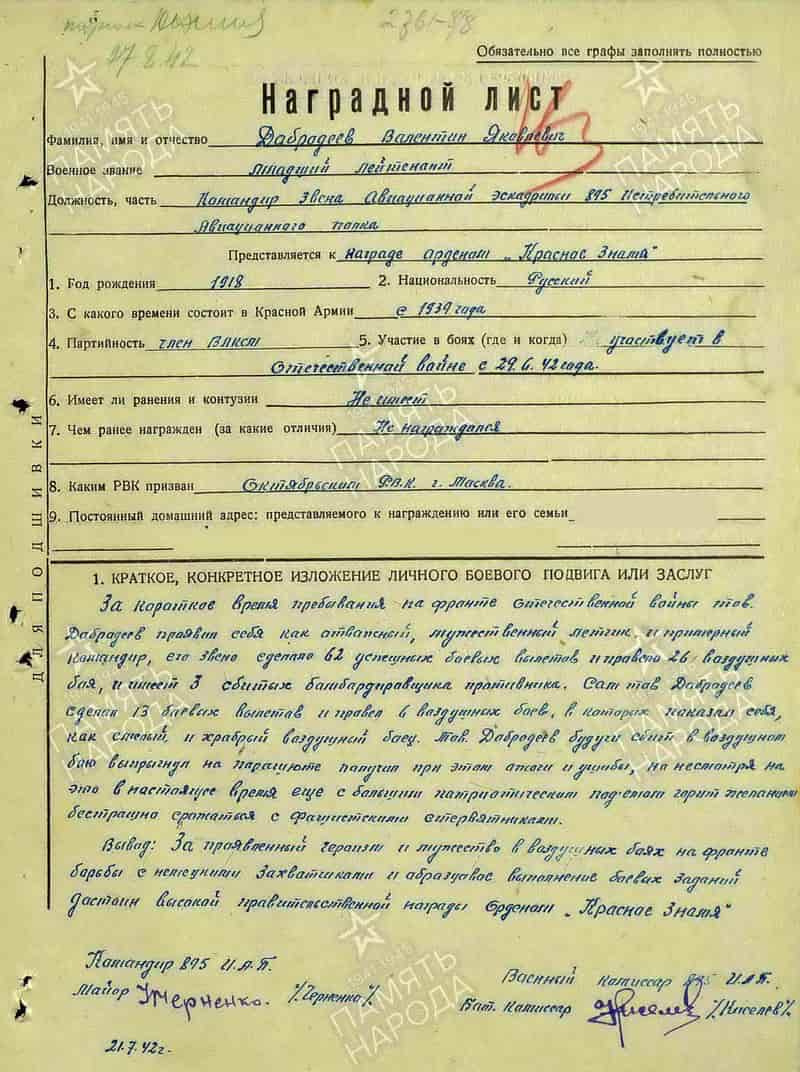 27.8.42
2361-98
Обязательно все графы заполнять полностью
Наградной лист
Фамилия, имя и отчество Добродеев Валентин Яковлевич
Военное звание Младший Лейтенант
Должность, часть Командир Звена Авиационной Эскадрильи 895 Истребительного
Авиационного полка
Представляется к Награде орденом „Красное Знамя“
1. Год рождения 1918 2. Национальность Русский
3. С какого времени состоит в Красной Армии с 1939 года
4. Партийность член ВЛКСМ 5. Участие в боях (где и когда) участвует в
Отечественной войне с 29.6.42 года.
6. Имеет ли ранения и контузии Не имеет
7. Чем ранее награжден (за какие отличия) Не награждался
8. Каким РВК призван Октябрьским Р.В.К. г. Москва.
9. Постоянный домашний адрес: представляемого к награждению или его семьи
ДЛЯ ПОДШИВКИ
1. КРАТКОЕ, КОНКРЕТНОЕ ИЗЛОЖЕНИЕ ЛИЧНОГО БОЕВОГО ПОДВИГА ИЛИ ЗАСЛУГ
За короткое время пребывания на фронте Отечественной войны тов.
Добродеев проявил себя как отважный, мужественный летчик и примерный
командир, его звено сделало 62 успешных боевых вылетов и провело 26 воздушных
боя, и имеет 3 сбитых бомбардировщика противника. Сам тов Добродеев
сделал 13 боевых вылетов и провел 6 воздушных боев, в которых показал себя,
как смелый и храбрый воздушный боец. Тов. Добродеев будучи сбит в воздушном
бою выпрыгнул на парашюте получил при этом ожоги и ушибы, но несмотря на
это в настоящее время еще с большим патриотическим под'емом горит желанием
бесстрашно сражаться с фашистскими стервятниками.
Вывод: За проявленный героизм и мужество в воздушных боях на фронте
борьбы с немецкими захватчиками и образцовое выполнение боевых заданий
достоин высокой правительственной награды Орденом „Красное Знамя“
Командир 895 И.А.П.
Майор Черненко. /Черненко/
Военный комиссар 895 И.А.П.
Бат. Комиссар /Киселев/
21.7.42г.
ПАМЯТЬ НАРОДА